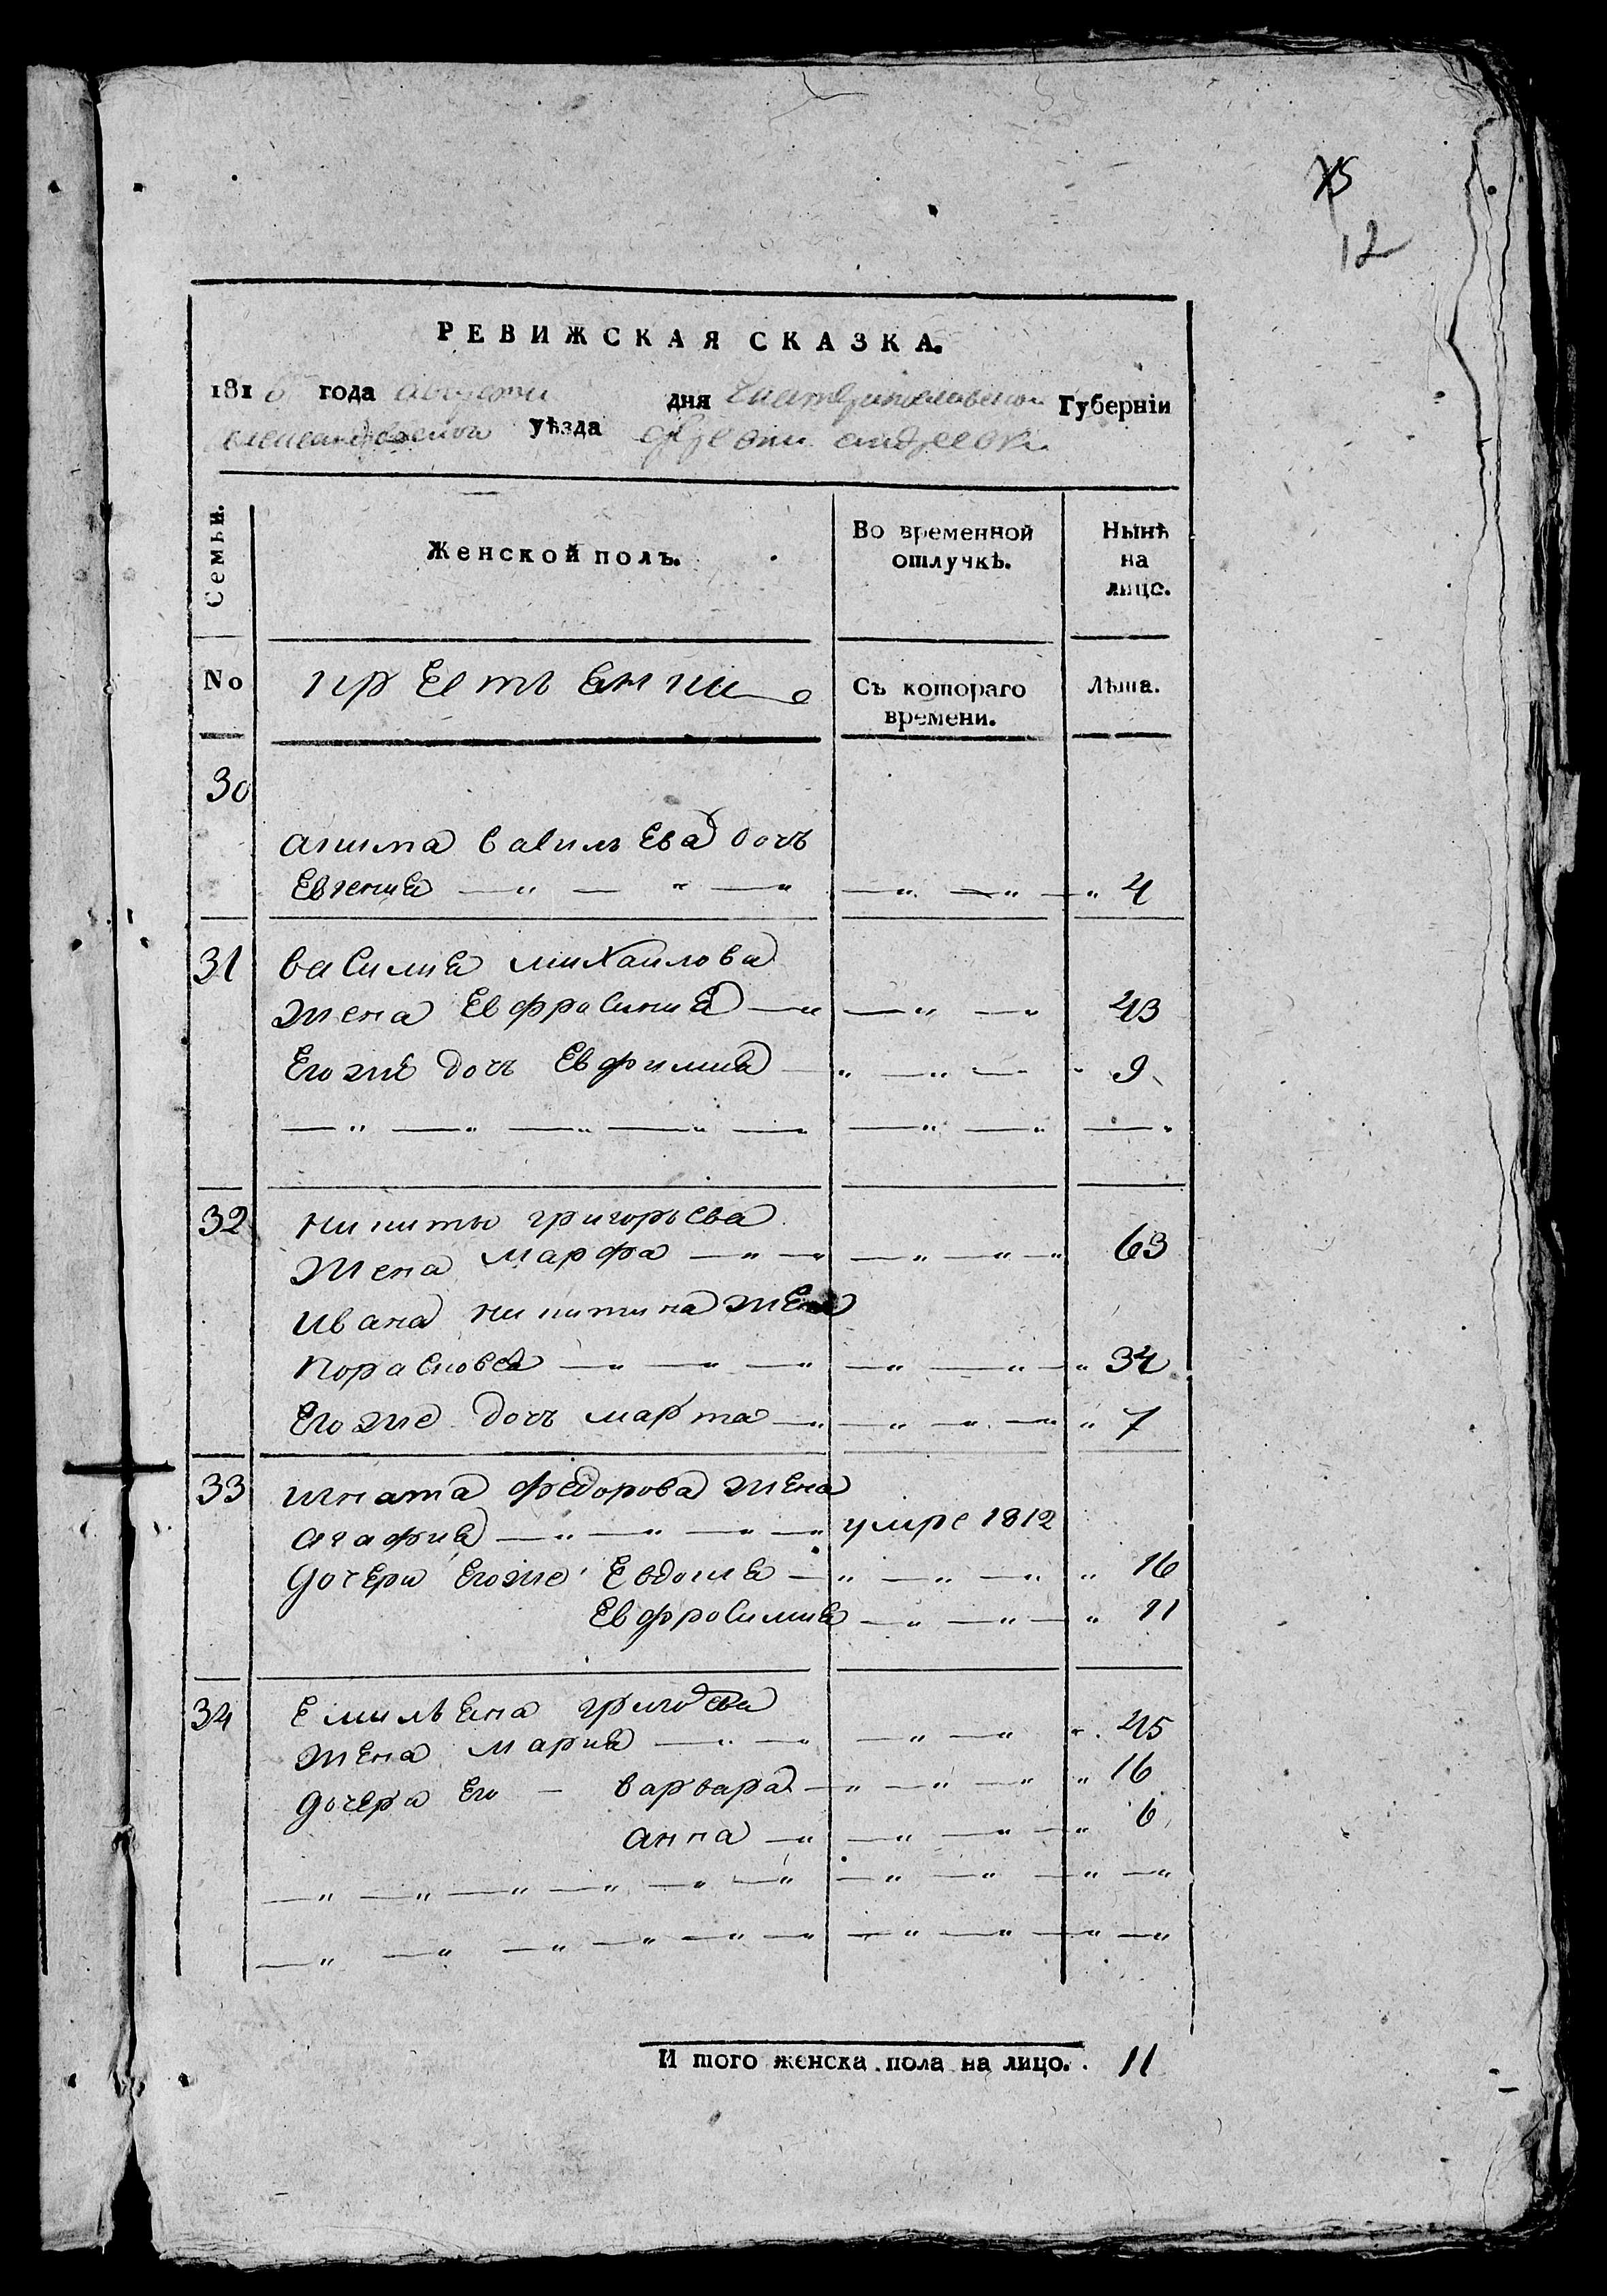 75
12
РЕВИЖСКАЯ СКАЗКА.
1816 года августа дня Екатеринославской Губерніи
александровской уѣзда деревни андреевки
Семьи.
Женской полъ.
Во временной отлучкѣ.
Нынѣ на лицо.
No
крестьянки
Съ котораго времени.
Лѣта.
30
акима савильева дочь
Евгения —„ — „ —„ —„ —„ —„ 4
31 василия михаилова
жена Евфросиния —„ —„ —„ 43
Егоже дочь Евфимия —„ —„ — „ 9
—„ —„ —„ —„ — —„ —„ —„
32 никиты григорьева
жена марфа —„ —„ —„ —„ —„ 63
ивана никитина жена
порасковея —„ —„ —„ —„ —„ —„ 34
Егоже дочь марта —„ —„ —„ —„ „ 7
33 игната федорова жена
агафия —„ —„ —„ —„ умре 1812
дочери Егоже Евдокия —„ —„ —„ „ 16
Евфросимия —„ —„ —„ 11
34 Емильяна григорева
жена мария —„ —„ —„ —„ „ 45
дочери Его — варвара —„ —„ —„ „ 16
анна —„ —„ —„ —„ 6
—„ —„ —„ —„ —„ —„ —„ —„ —„ —„
—„ —„ —„ —„ —„ —„ —„ —„ —„ —„
И того женска пола на лицо. 11